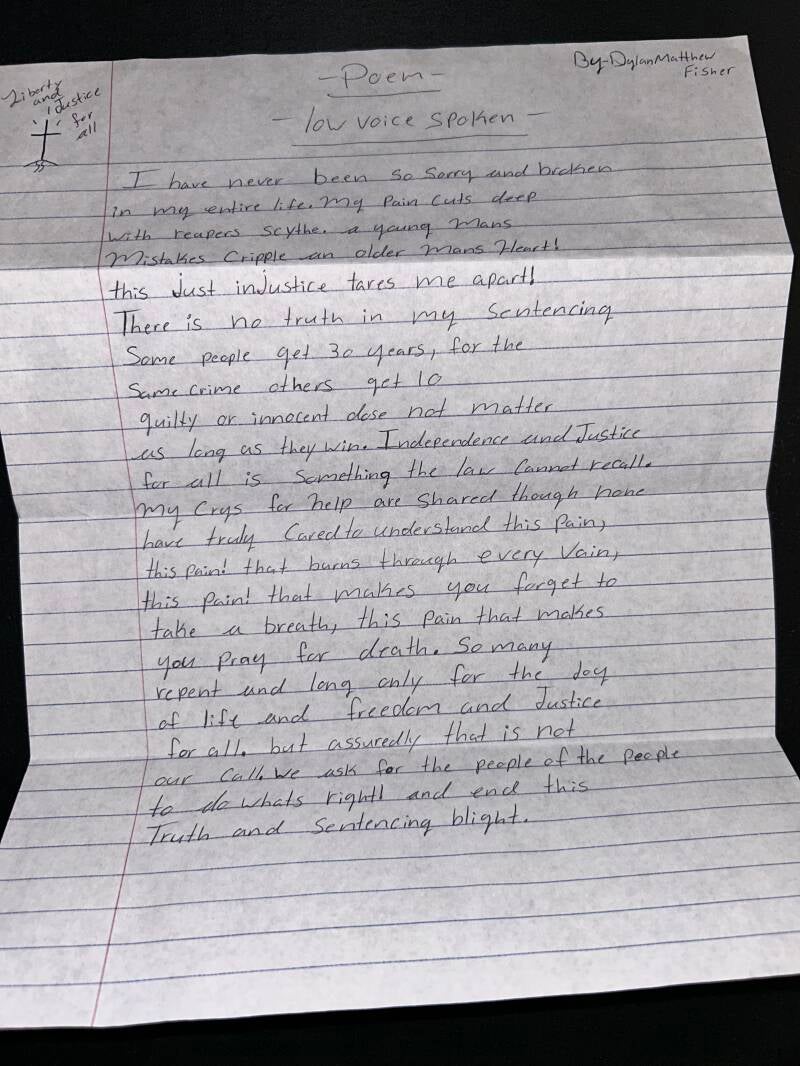 Liberty
and
Justice
for
all
By-Dylan Matthew
Fisher
-Poem-
-low voice spoken-
I have never been so sorry and broken
in my entire life. My Pain cuts deep
with reapers scythe. a young mans
Mistakes Cripple an older mans Heart!
this Just inJustice tares me apart!
There is no truth in my sentencing
Some people get 30 years, for the
same crime others get 10
guilty or innocent dose not matter
as long as they win. Independence and Justice
for all is something the law cannot recall.
My Crys for help are shared though none
have truly Cared to understand this Pain,
this Pain! that burns through every Vain,
this Pain! that makes you forget to
take a breath, this Pain that makes
you Pray for death. So many
repent and long only for the day
of life and freedom and Justice
for all. but assuredly that is not
our Call. We ask for the people of the people
to do whats right! and end this
Truth and Sentencing blight.